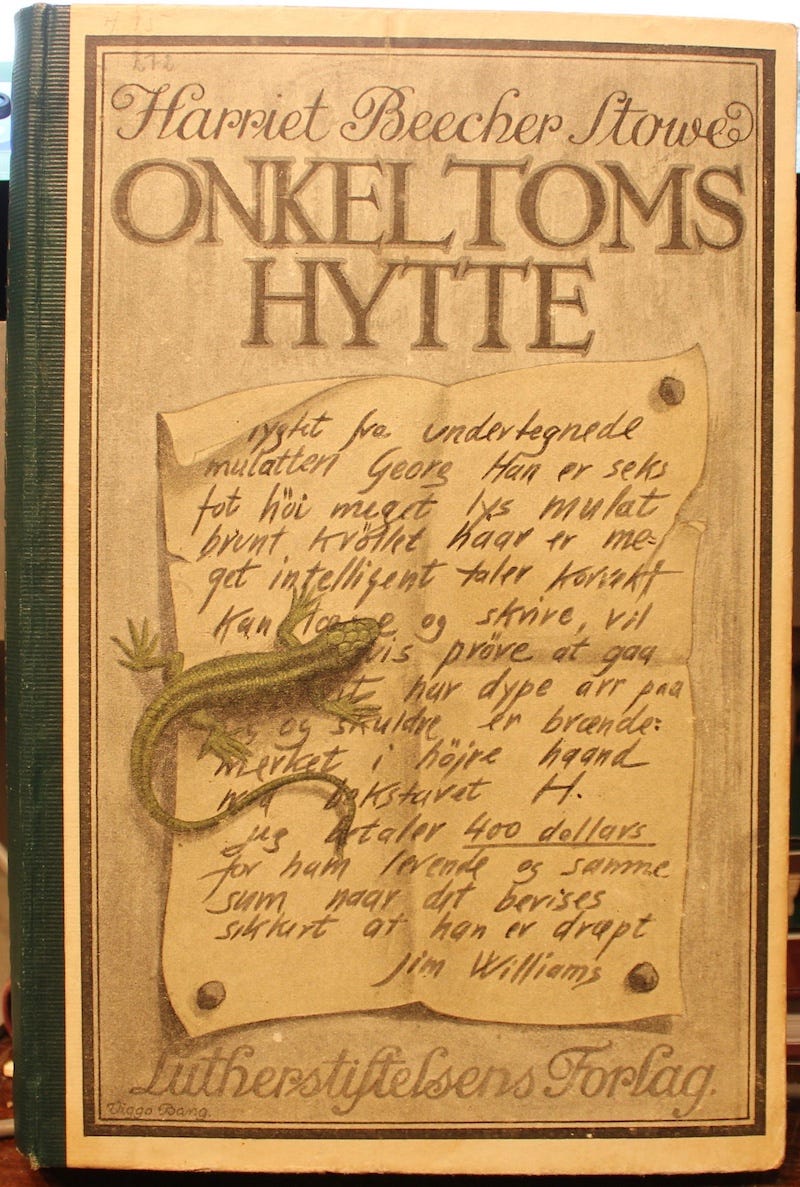 Harriet Beecher Stowe
ONKEL TOMS
HYTTE
rygtt fra undertegnede
mulatten Georg Han er seks
fot höi meget lys mulat
brunt kröllet haar er me=
get intelligent taler korrekt
kan og skrive, vil
vis pröve at gaa
har dype arr paa
og skuldre er brænde=
merket i höjre haand
bokstavet H.
jeg betaler 400 dollars
for ham levende og samme
sum naar det bevises
sikkert at han er dræpt
Jim Williams
Lutherstiftelsens Forlag.
Viggo Bang.